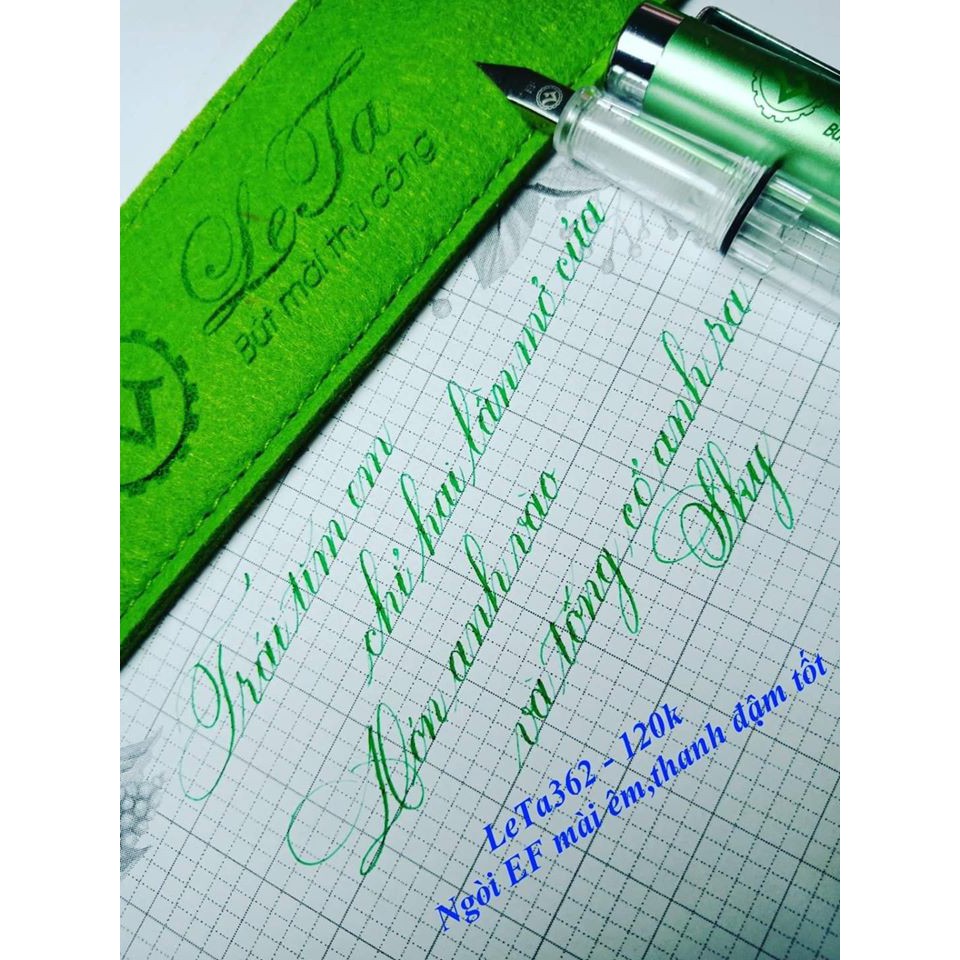 LeTa
Bút mài thủ công
Trái tim em
chỉ hai lần mở cửa
Đón anh vào
và tống cổ anh ra
Sky
LeTa362 - 120k
Ngòi EF mài êm,thanh đậm tốt